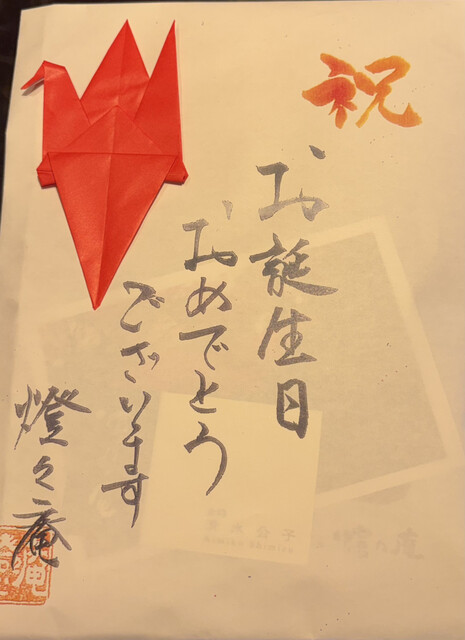 祝
お誕生日
おめでとう
ございます
燈々庵